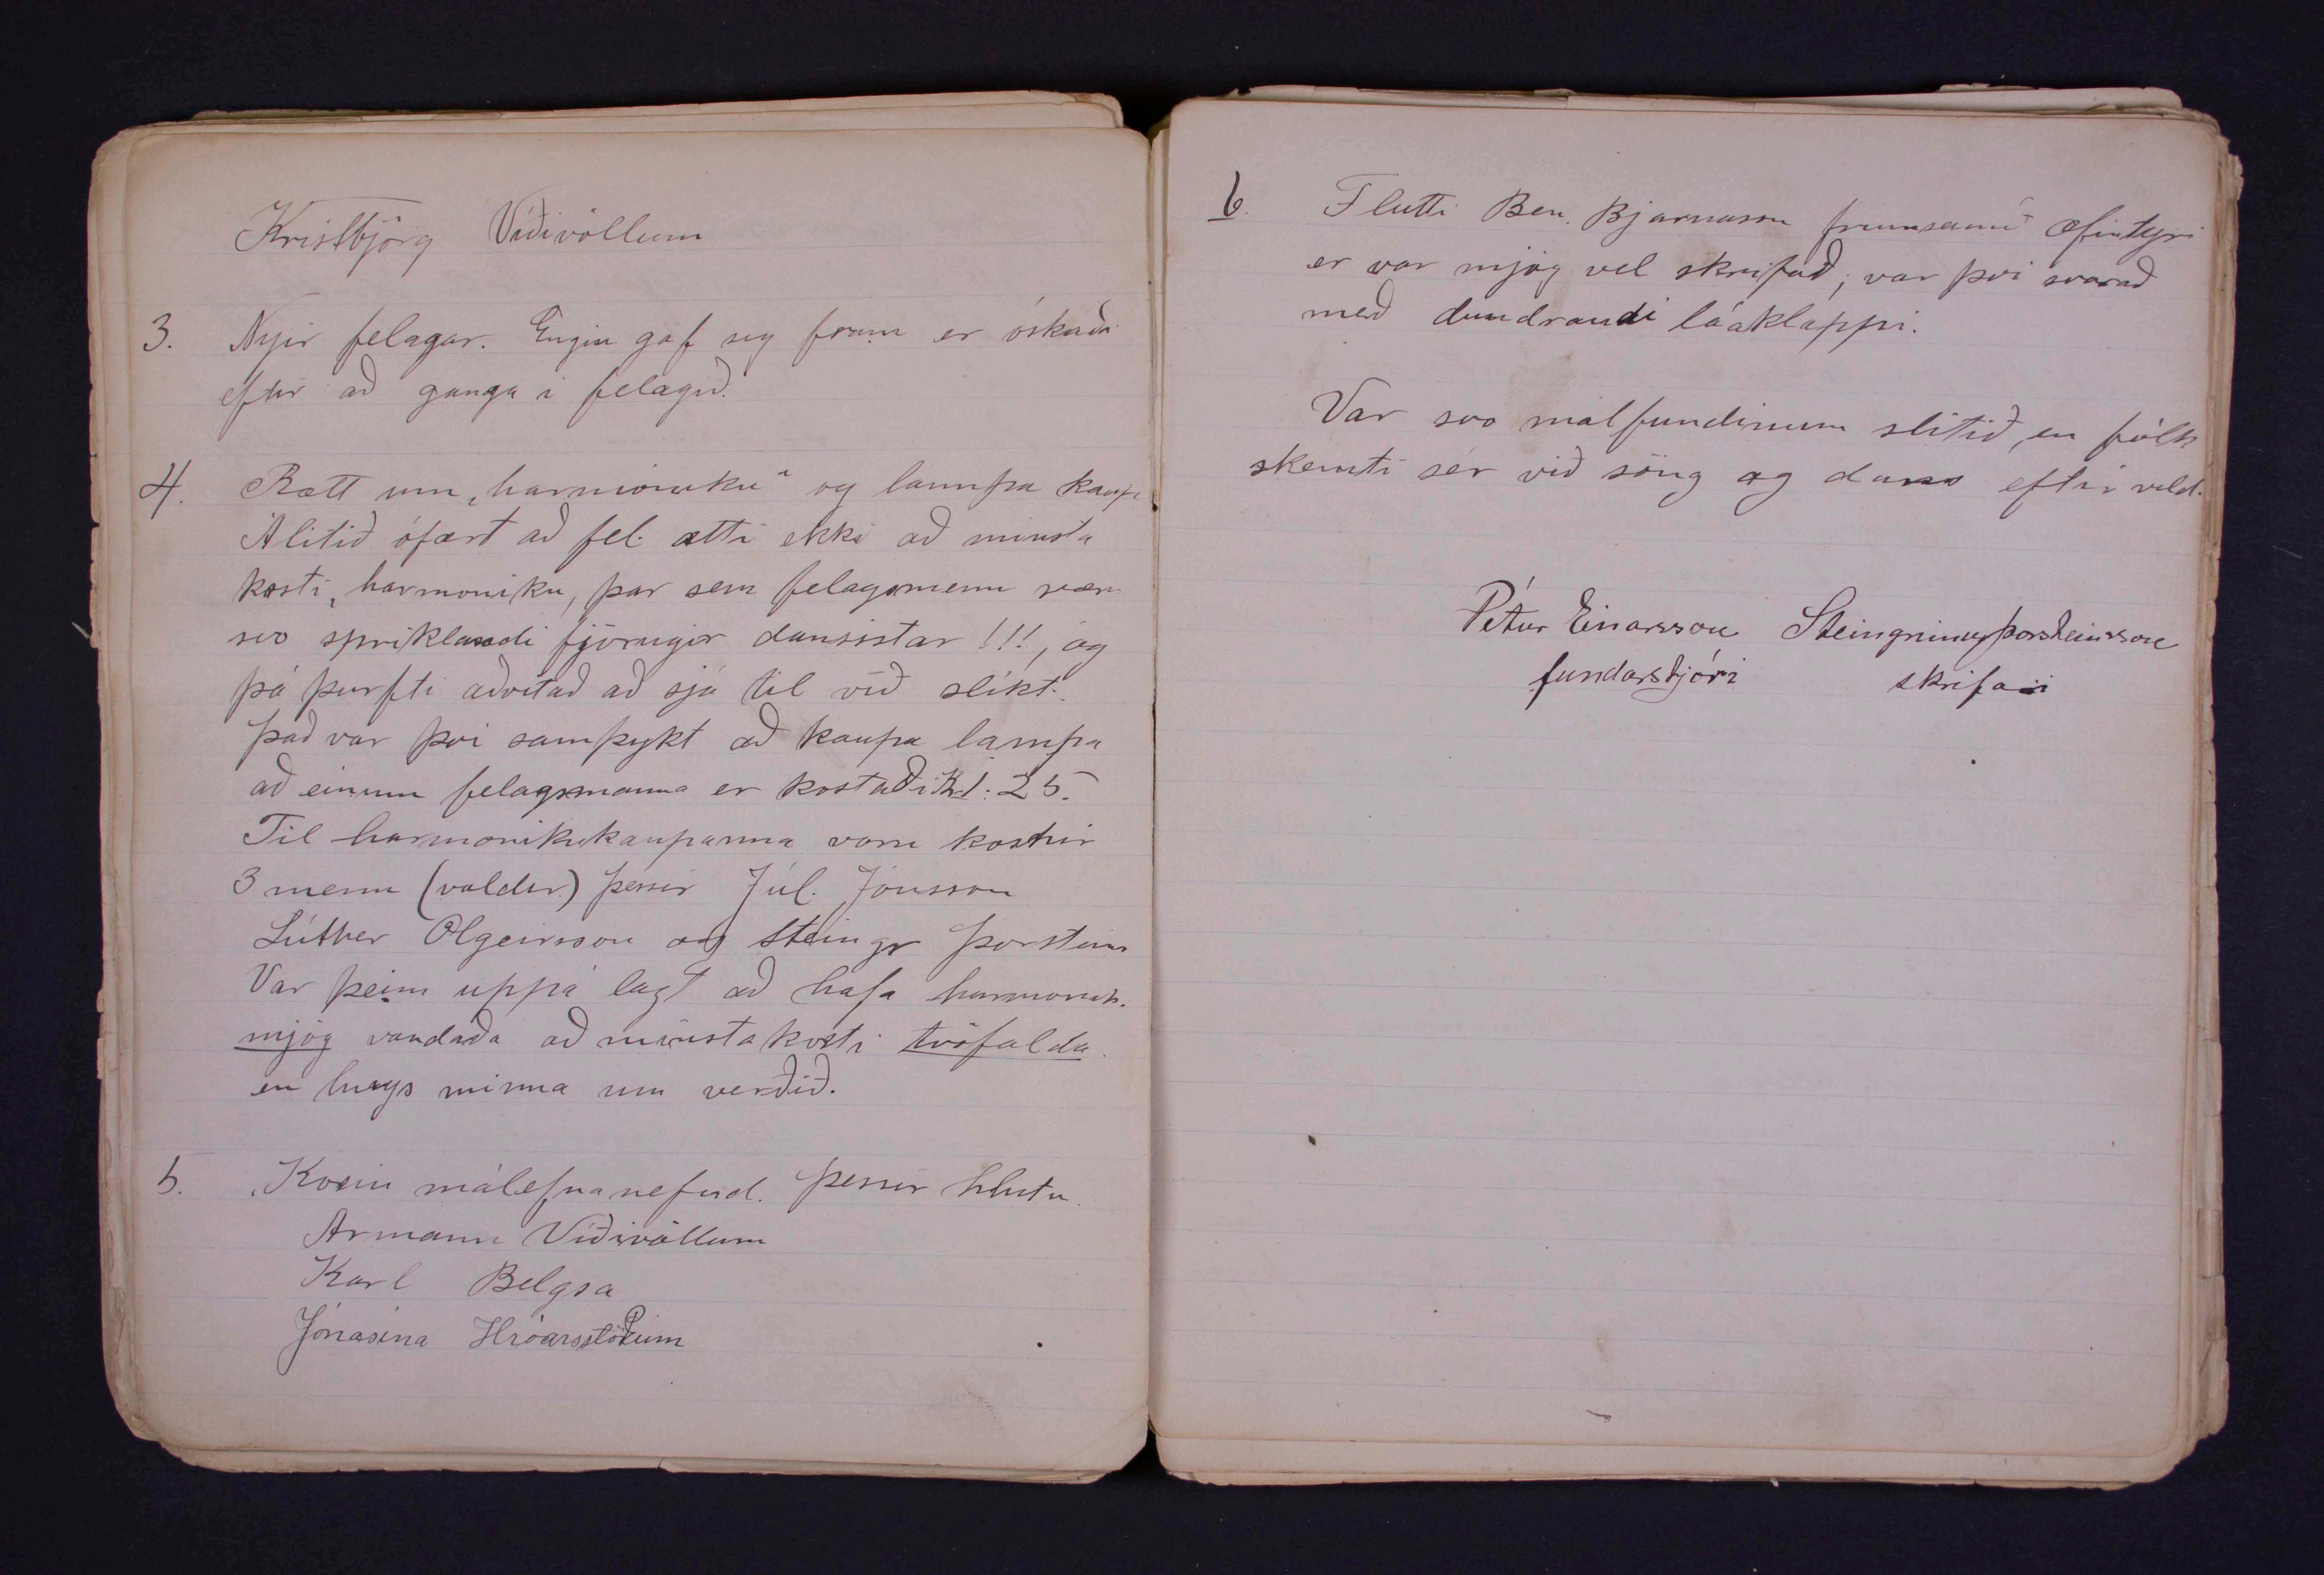 Kristbjörg Víðivöllum
3. Nyir felagar. Engin gaf sig fram er óskaði
eftir að ganga i felagið.
4. Rætt um „harmóniku" og lampa kaup
Álitið ófært að fel. ætti ekki að minsta
kosti, harmoniku, þar sem felagsmenn væru
svo spriklandi fjörugir dansistar !!!, og
þá þurfti aðvitað að sjá til við slíkt.
Það var þvi samþykt að kaupa lampa
að einum felagsmanna er kostaði Kr 1:25.
Til harmonikukaupanna voru kosnir
3 menn (valdir) þessir Júl. Jónsson
Lúther Olgeirsson og Steingr Þorsteins
Var þeim uppá lagt að hafa harmonik.
mjög vandaða að minsta kosti tvöfalda
en hugs minna um verðið.
5. Kosin málefnanefnd. Þessir hlutu.
Armann Víðivöllum
Karl Belgsa
Jónasina Hróarsstöðum
6. Flutti Ben. Bjarnason frumsamið æfintyri
er var mjög vel skrifað; var þvi svarað
með dundrandi lóaklappi.
Var svo málfundinum slitið, en fólk
skemti sér við söng og dans eftir vild.
Pétur Einarsson Steingrimur Þorsteinsson
fundarstjóri skrifari